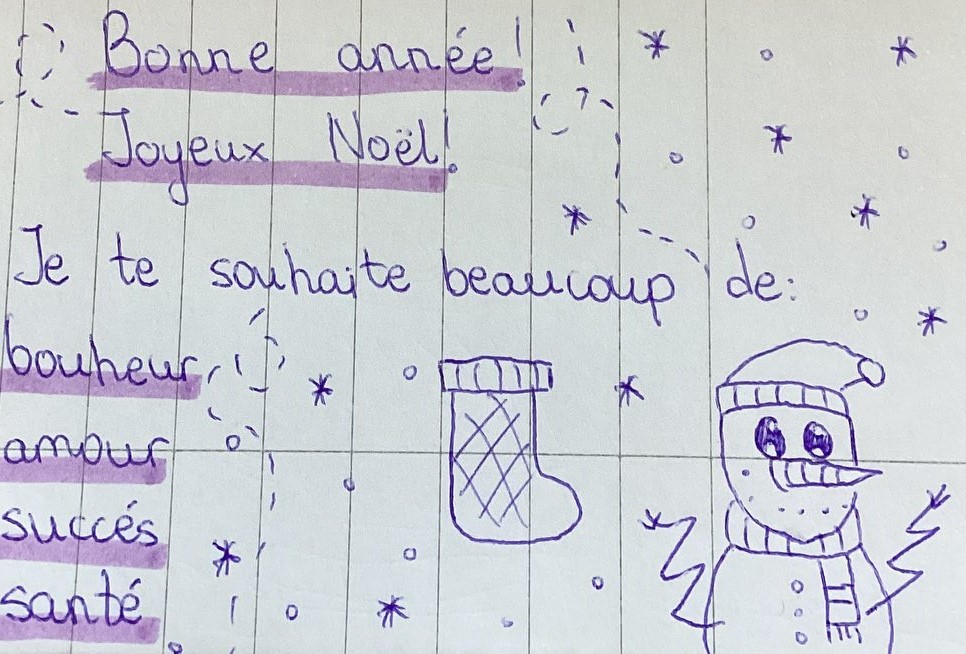 Bonne année!
Joyeux Noël!
Je te souhaite beaucoup de:
bouheur,
amour
succés
santé